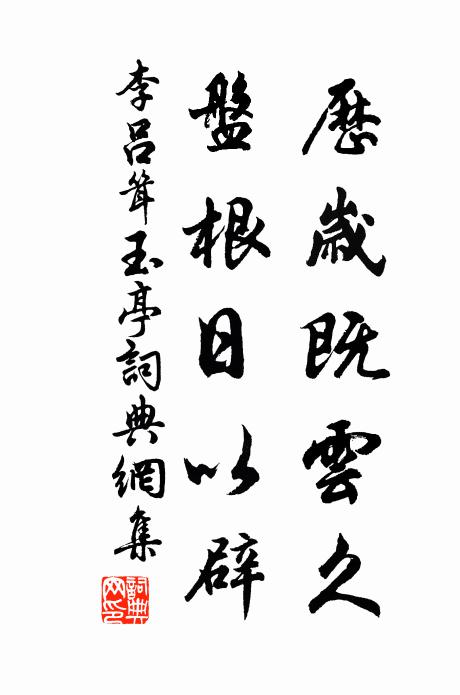 歷歲既雲久
盤根日以辟
李呂聳玉亭詞典網集
詞典
网印